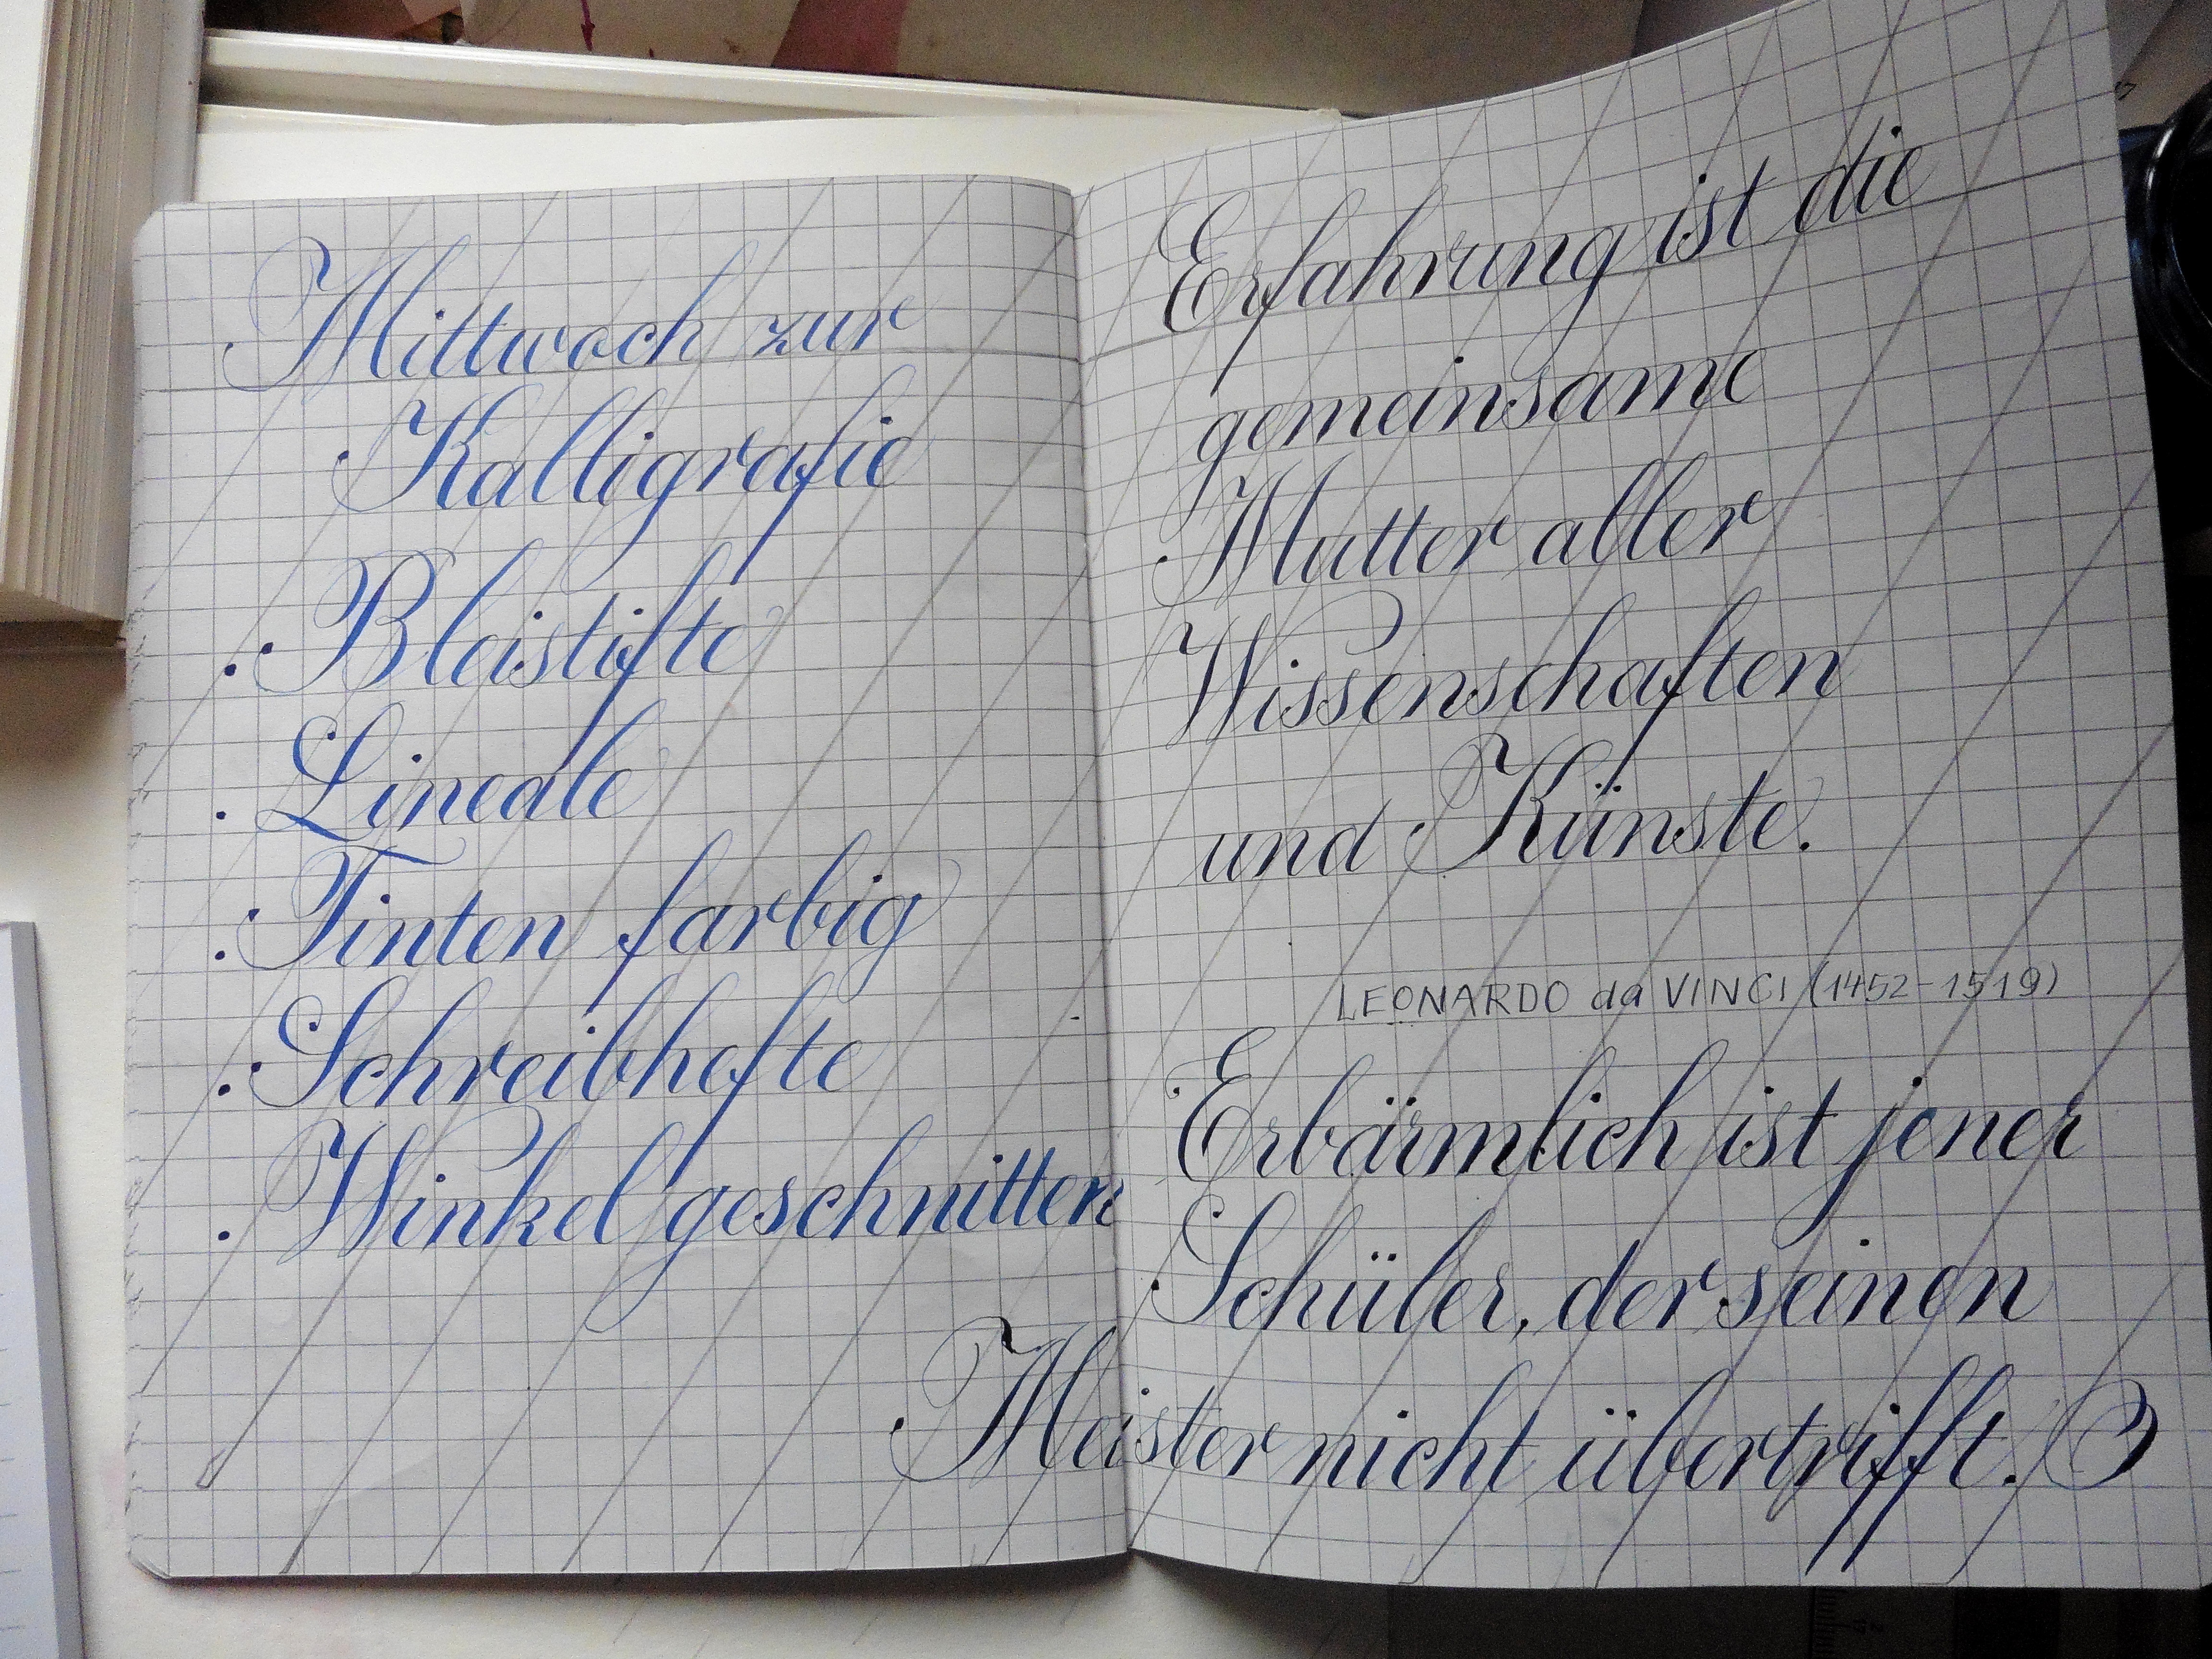 Mittwoch zur
Kalligrafie
. Bleistifte
. Lineale
. Tinten farbig
. Schreibhefte
. Winkel geschnitten
Erfahrung ist die
gemeinsame
Mutter aller
Wissenschaften
und Künste.
LEONARDO da VINCI (1452-1519)
Erbärmlich ist jener
Schüler, der seinen
Meister nicht übertrifft.